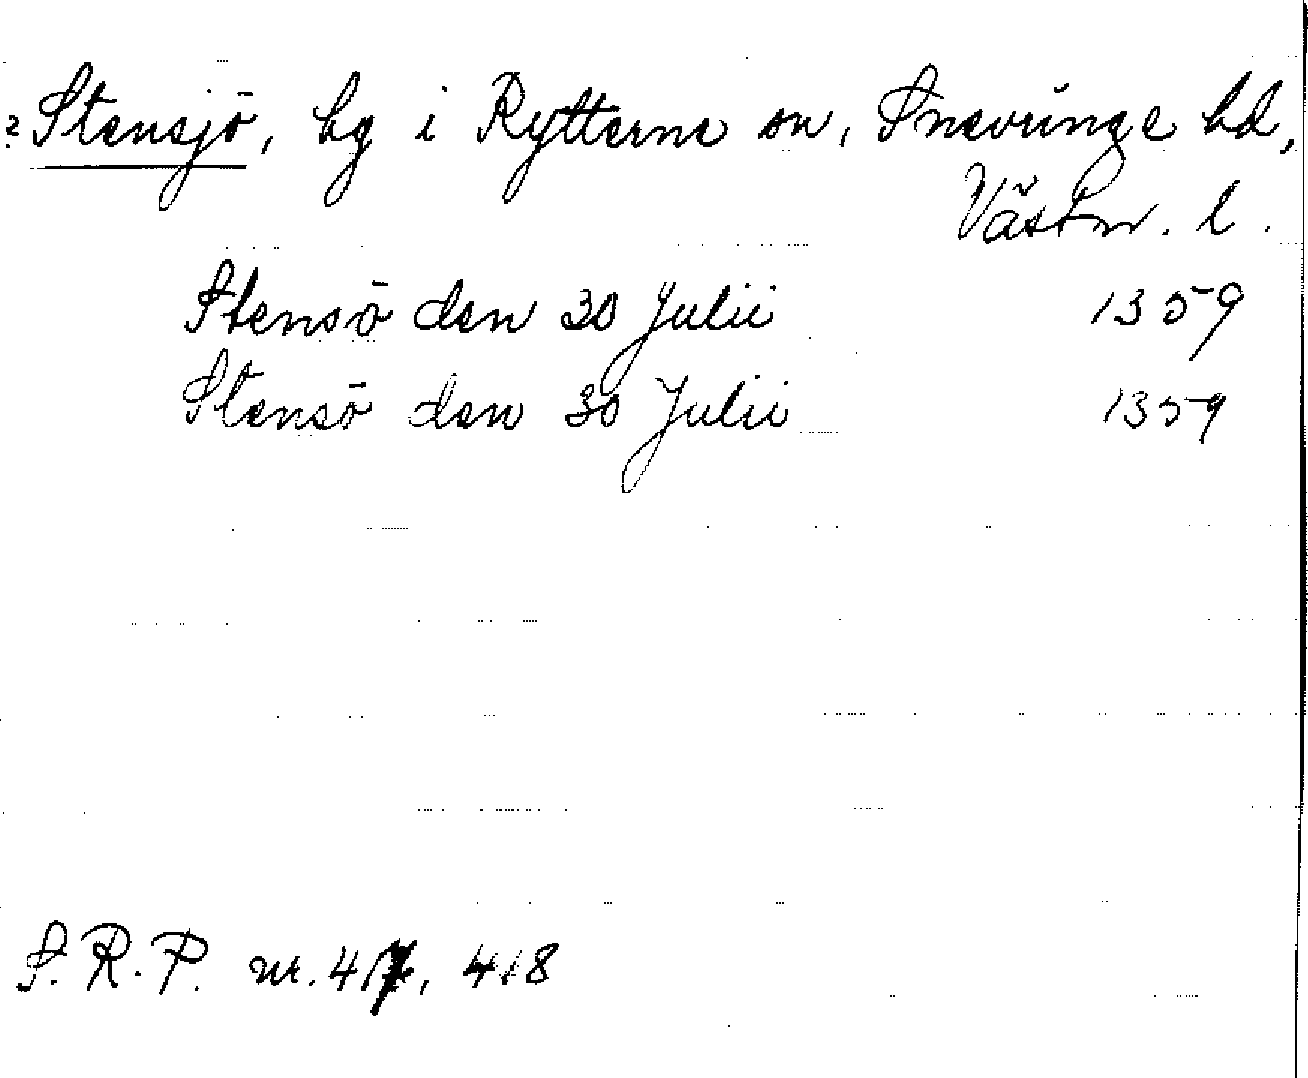 ? Stensjö, by i Rytterne sn, Snevringe hd,
Västm. l.
Stensö den 30 Julii 1359
Stensö den 30 Julii 1359
S.R.P. nr. 417, 418